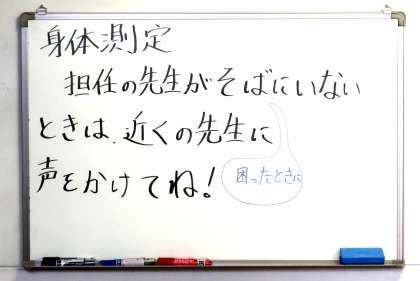 身体測定
担任の先生がそばにいない
ときは、近くの先生に
声をかけてね!
困ったときに